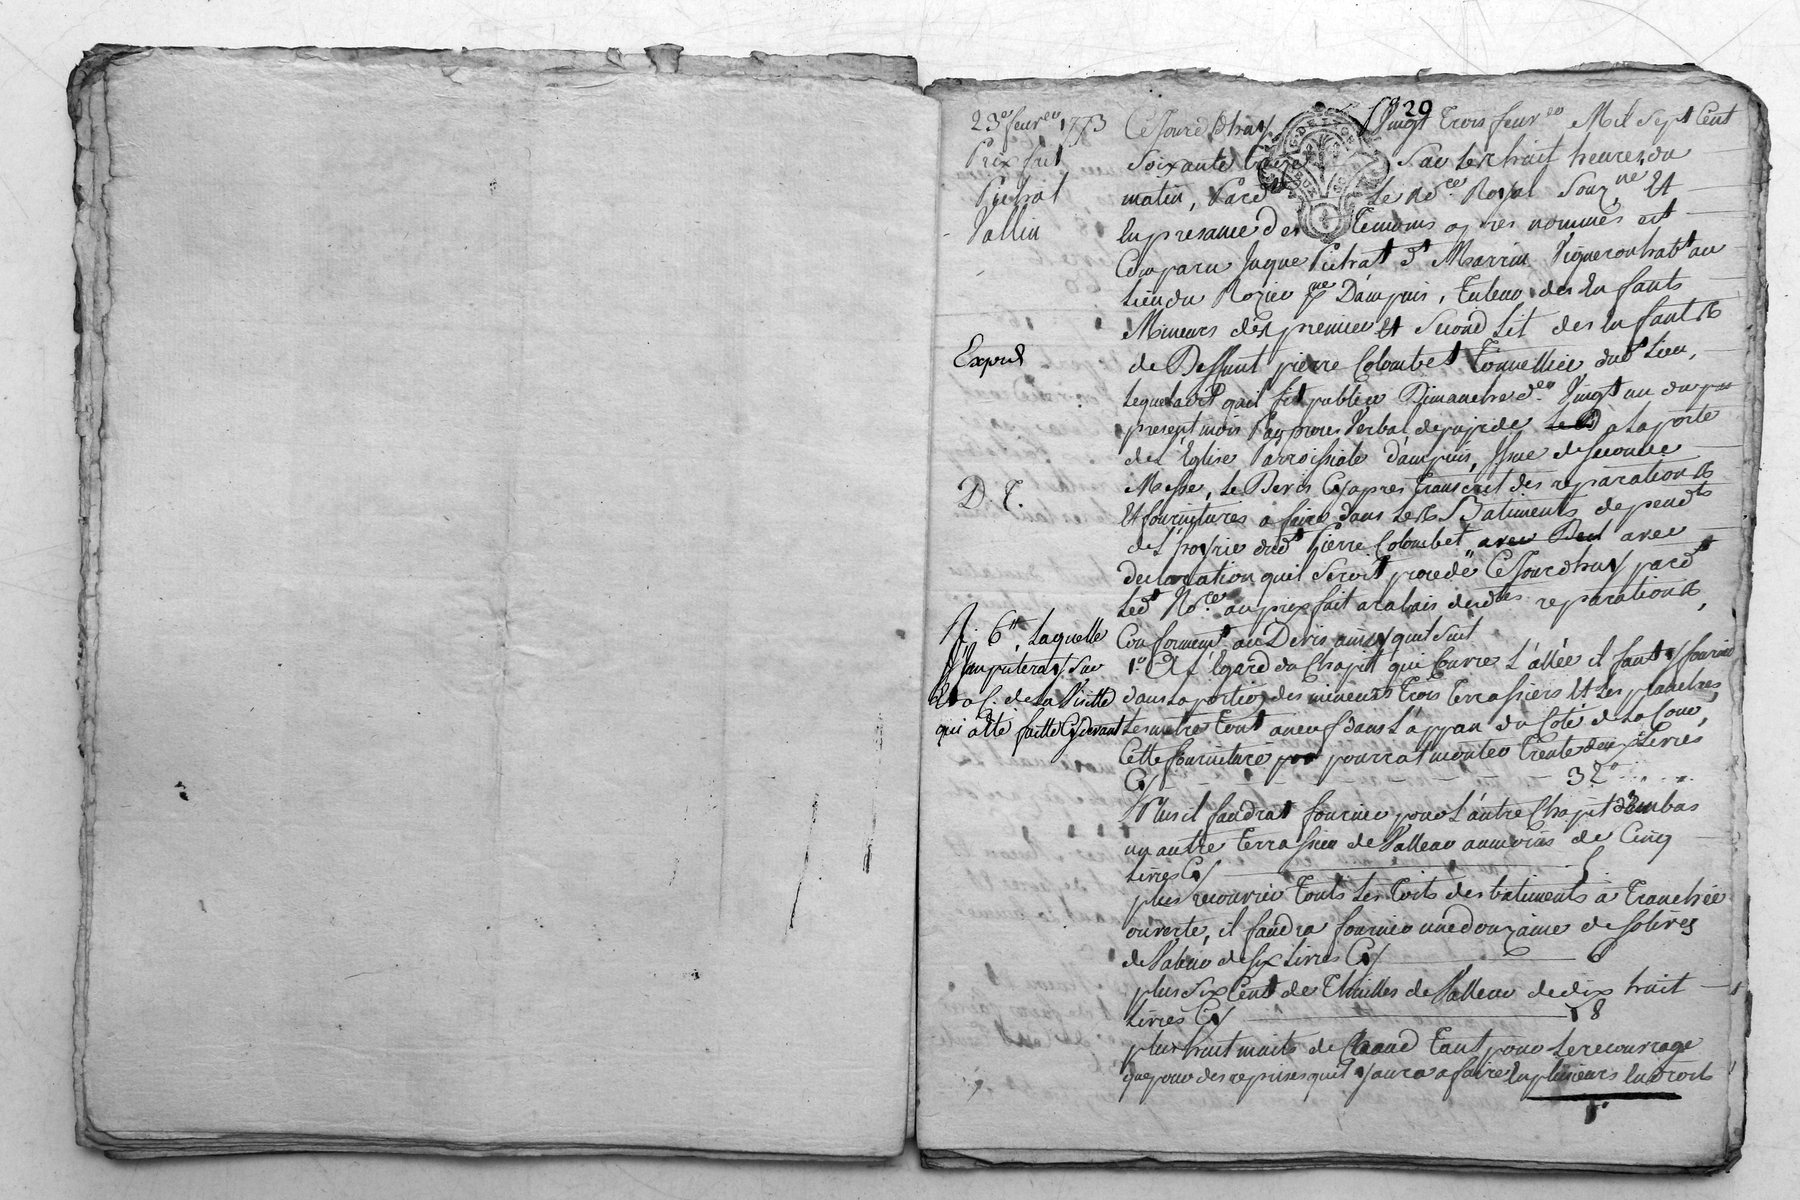 29
23e fevrer 1773
Prix fait
Pichat
Vallin
Expéd
D. T.
6tt, Laquelle
s'imputerat sur
de la Visitte
qui a été faitte Cydevant
Cejourdhuy Vingt trois fevrer Mil Sept Cent
Soixante treize Sur les huit heures du
matin, Pard Le Nore Royal Souz.né Et
En presance des Temoins apres nommés est
Comparu Jaque Pichat dt Marrin Vigneron habt au
Lieu du Rozier psse D'ampuis, Tuteur des Enfants
Mineurs des premier et Second Lit des Enfants
de Deffunt pierre Colombet Tonnellier dudt Lieu,
Lequel a dit qu'il fit publier Dimanche der Vingt un du
present mois Par proces Verbal de a La porte
de L'Eglise Parroissiale d'ampuis, Issue de seconde
Messe, Le Devis Cyapres transcrit des reparations
Et fournitures a faire dans Les Batiments dependts
de L'hoyrie dudt Pierre Colombet avec
declaration quil seroit procedé Cejourdhuy pard
Ledt Nore au prix fait a rabais desdtes reparations,
Conformemt au Devis ainsy quil suit
1.° A L'Egard du Chapit qui Couvre L'allée il faut fournir
dans la portion des mineurs trois terrassiers Et Les planches
Les mettre tout a neuf dans L'appan du Coté de La Cour,
Cette fourniture pourrat monter trente deux Livres
Cy 32
Plus il faudrat fournir pour L'autre Chapit d'Embas
un autre terrassier de Valleur au moins de Cinq
Livres Cy 5
plus recouvrir touts Les toits des batiments à tranchée
ouverte, il faudra fournir une douzaine de solives
de Valeur de six Livres Cy 6
plus six Cent de Thuilles de Valleur de dix huit
Livres Cy 18
plus huit muits de Chaud tant pour Le recouvrage
que pour des reprises quil y aura a faire En plusieurs Endroits